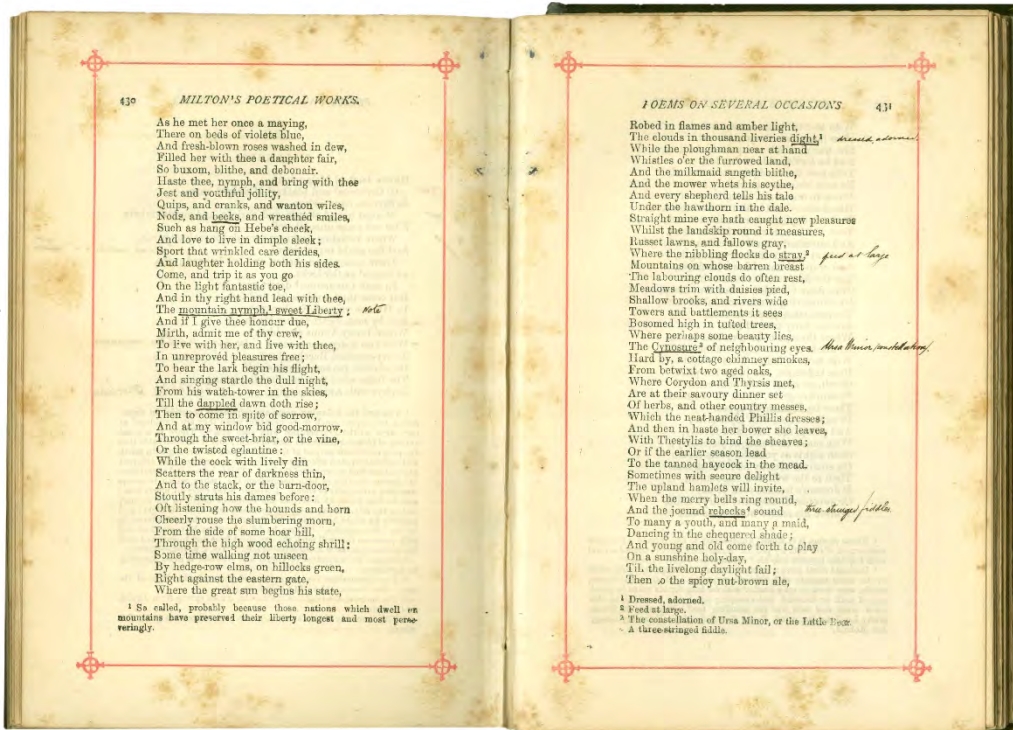 430 MILTON'S POETICAL WORKS.
As he met her once a maying,
There on beds of violets blue,
And fresh-blown roses washed in dew,
Filled her with thee a daughter fair,
So buxom, blithe, and debonair.
Haste thee, nymph, and bring with thee
Jest and youthful jollity,
Quips, and cranks, and wanton wiles,
Nods, and becks, and wreathéd smiles,
Such as hang on Hebe's cheek,
And love to live in dimple sleek;
Sport that wrinkled care derides,
And laughter holding both his sides.
Come, and trip it as you go
On the light fantastic toe,
And in thy right hand lead with thee,
The mountain nymph,¹ sweet Liberty; Note
And if I give thee honour due,
Mirth, admit me of thy crew,
To live with her, and live with thee,
In unreprovéd pleasures free;
To hear the lark begin his flight,
And singing startle the dull night,
From his watch-tower in the skies,
Till the dappled dawn doth rise;
Then to come in spite of sorrow,
And at my window bid good-morrow,
Through the sweet-briar, or the vine,
Or the twisted eglantine:
While the cock with lively din
Scatters the rear of darkness thin,
And to the stack, or the barn-door,
Stoutly struts his dames before:
Oft listening how the hounds and horn
Cheerly rouse the slumbering morn,
From the side of some hoar hill,
Through the high wood echoing shrill:
Some time walking not unseen
By hedge-row elms, on hillocks green,
Right against the eastern gate,
Where the great sun begins his state,
1 So called, probably because those nations which dwell on
mountains have preserved their liberty longest and most perse-
veringly.
POEMS ON SEVERAL OCCASIONS 431
Robed in flames and amber light,
The clouds in thousand liveries dight,¹ dressed, adorned.
While the ploughman near at hand
Whistles o'er the furrowed land,
And the milkmaid singeth blithe,
And the mower whets his scythe,
And every shepherd tells his tale
Under the hawthorn in the dale.
Straight mine eye hath caught new pleasures
Whilst the landskip round it measures,
Russet lawns, and fallows gray,
Where the nibbling flocks do stray,² feed at large
Mountains on whose barren breast
The labouring clouds do often rest,
Meadows trim with daisies pied,
Shallow brooks, and rivers wide
Towers and battlements it sees
Bosomed high in tufted trees,
Where perhaps some beauty lies,
The Cynosure³ of neighbouring eyes. Ursa Minor (constellation).
Hard by, a cottage chimney smokes,
From betwixt two aged oaks,
Where Corydon and Thyrsis met,
Are at their savoury dinner set
Of herbs, and other country messes,
Which the neat-handed Phillis dresses;
And then in haste her bower she leaves,
With Thestylis to bind the sheaves;
Or if the earlier season lead
To the tanned haycock in the mead.
Sometimes with secure delight
The upland hamlets will invite,
When the merry bells ring round,
And the jocund rebecks⁴ sound three-stringed fiddles.
To many a youth, and many a maid,
Dancing in the chequered shade;
And young and old come forth to play
On a sunshine holy-day,
Till the livelong daylight fail;
Then to the spicy nut-brown ale,
1 Dressed, adorned.
2 Feed at large.
3 The constellation of Ursa Minor, or the Little Bear.
A three-stringed fiddle.